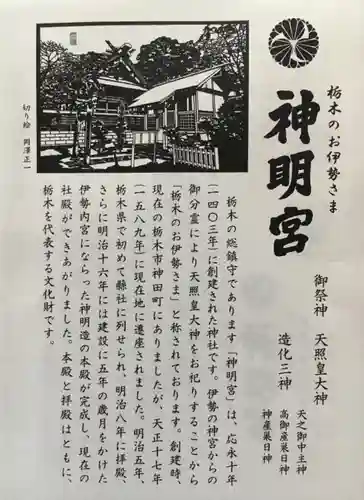 栃木のお伊勢さま
神明宮
御祭神　天照皇大神
造化三神
天之御中主神
高御産巣日神
神産巣日神
切り絵　岡澤正一
栃木の総鎮守であります「神明宮」は、応永十年
(一四〇三年)に創建された神社です。伊勢の神宮からの
御分霊により天照皇大神をお祀りすることから
「栃木のお伊勢さま」と称されております。創建時、
現在の栃木市神田町にありましたが、天正十七年
(一五八九年)に現在地に遷座されました。明治五年、
栃木県で初めて縣社に列せられ、明治八年に拝殿、
さらに明治十六年には建設に五年の歳月をかけた
伊勢内宮にならった神明造の本殿が完成し、現在の
社殿ができあがりました。本殿と拝殿はともに、
栃木を代表する文化財です。